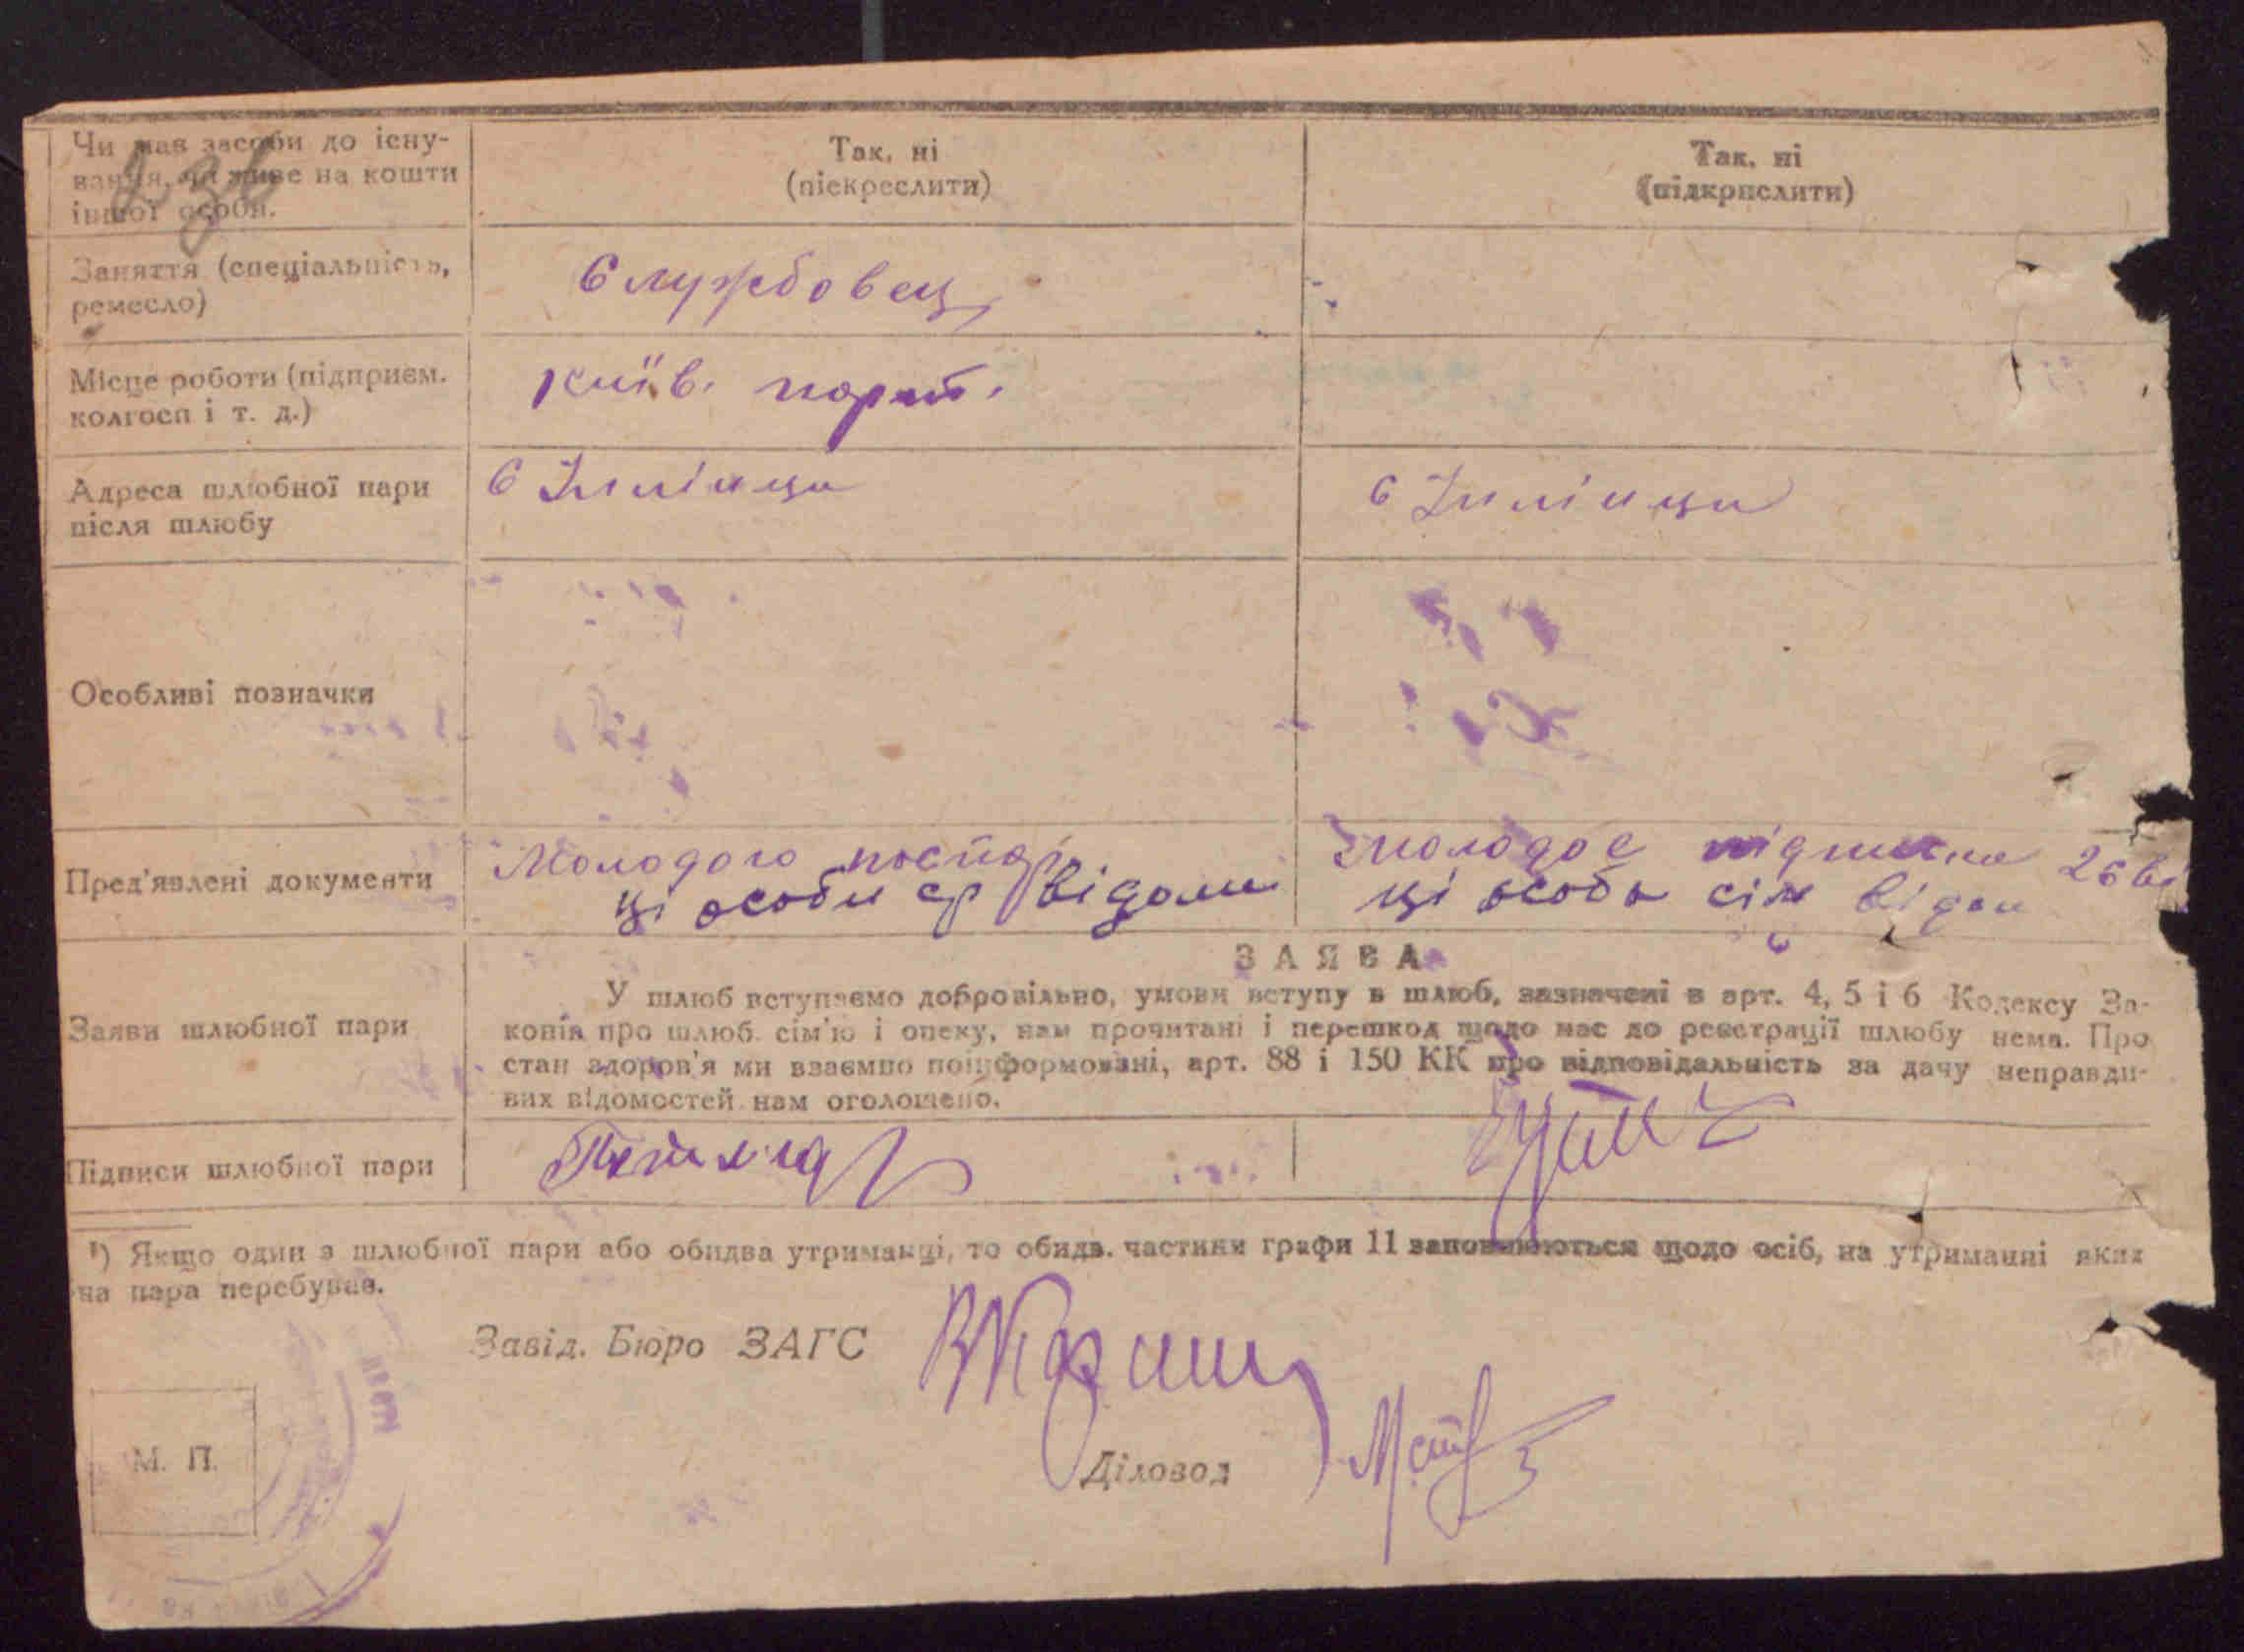 Чи має засоби до існу-
вання, чи живе на кошти
іншої особи.
Так, ні
(піекреслити)
Так, ні
(підкрислити)
Заняття (спеціальність,
ремесло)
Службовец
Місце роботи (підприєм.
колгосп і т. д.)
Київ. порт.
Адреса шлюбної пари
після шлюбу
с Іллінци
с Іллінци
Особливі позначки
Пред'явлені документи
Молодого
ці особи відоми
Молодоє
ці особи
Заяви шлюбної пари
ЗАЯВА
У шлюб вступаємо добровільно, умови вступу в шлюб, зазначені в арт. 4, 5 і 6 Кодексу За-
конів про шлюб. сім'ю і опеку, нам прочитані і перешкод щодо нас до реєстрації шлюбу нема. Про
стан здоров'я ми взаємно поінформовані, арт. 88 і 150 КК про відповідальність за дачу неправди-
вих відомостей нам оголошено.
Підписи шлюбної пари
¹) Якщо один з шлюбної пари або обидва утриманці, то обидв. частини графи 11 заповнюються щодо осіб, на утриманні яких
на пара перебуває.
Завід. Бюро ЗАГС
Діловод
М. П.